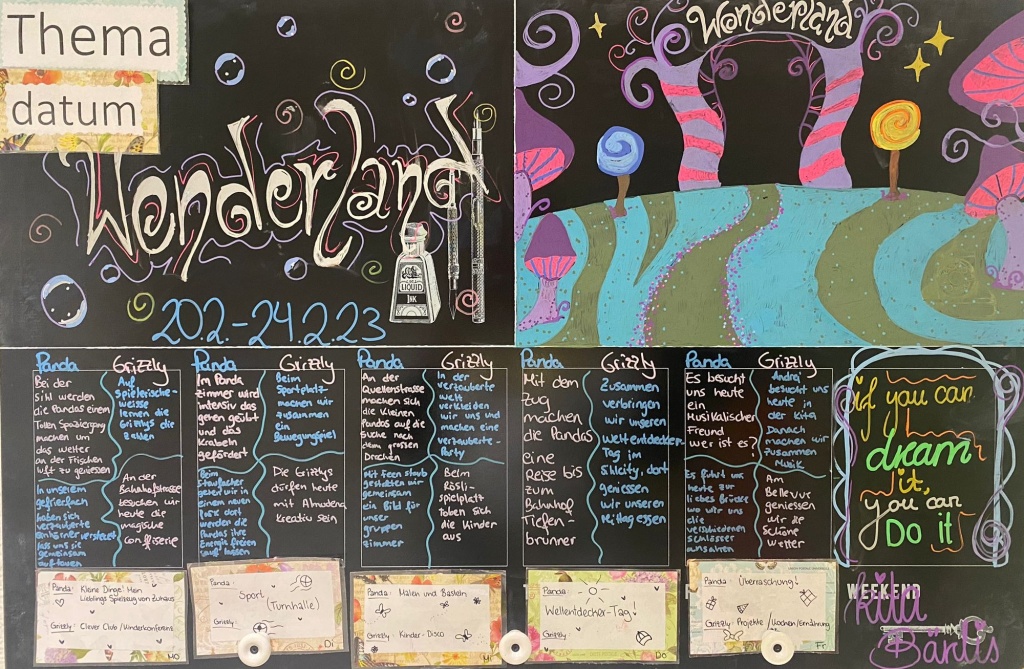 Thema
datum
Wonderland
LIQUID
INK
20.2.-24.2.23
Wonderland
Panda
Bei der
Sihl werden
die Pandas einem
Tollen Spaziergang
machen um
das wetter
an der Frischen
luft zu geniessen
In unserem
gefrierfach
haben sich
verzauberte
einhörner versteckt
lass uns sie
gemeinsam
auftauen
Grizzly
Auf
Spielerische-
weisse
lernen die
Grizzlys die
zahlen
An der
Bahnhofstrasse
besuchen wir
heute die
magische
Confiserie
Panda
Im Panda
zimmer wird
intensiv das
gehen geübt
und das
Krabeln
gefördert
Beim
Stauffacher
gehen wir in
einem neuen
Park dort
werden die
Pandas ihre
Energie freien
lauf lassen
Grizzly
Beim
Sportplatz-
machen wir
zusammen
ein
Bewegungspiel
Die Grizzlys
dürfen heute
mit Almudena
Kreativ sein
Panda
An der
Quellenstrasse
machen sich
die kleinen
Pandas auf die
Suche nach
dem großen
Drachen
Mit Feen staub
gestalten wir
gemeinsam
ein Bild für
unser
gruppen
zimmer
Grizzly
In der
verzauberte
welt
verkleiden
wir uns und
machen eine
verzauberte-
Party
Beim
Rösli-
spielplatz
toben sich
die Kinder
aus
Panda
Mit dem
Zug
machen
die Pandas
eine
Reise bis
zum
Bahnhof
Tiefen-
brunner
Grizzly
Zusammen
verbringen
wir unseren
weltentdecker-
Tag im
Sihlcity, dort
geniessen
wir unseren
Mittag essen
Panda
Es besucht
uns heute
ein
Musikalischer
Freund
wer ist es?
Es führt uns
heute zur
liebes Brücke
wo wir uns
die
verschiedenen
schlösser
ansehen
Grizzly
André
besucht uns
heute in
der Kita
Danach
machen wir
zusammen
Musik
Am
Bellevue
geniessen
wir die
Schöne
wetter
if you can
dream
it,
you can
Do it
Panda: Kleine Dinge: Mein
Lieblings Spielzeug von Zuhause
Grizzly: Clever Club / Kinderkonferenz
Mo
Panda:
Sport
(Turnhalle)
Grizzly:
Di
Panda: Malen und Basteln
Grizzly: Kinder-Disco
Mi
Panda:
Weltentdecker-Tag!
Grizzly:
Do
Panda: Überraschung!
Grizzly: Projekte / Kochen/Ernährung
Fr
WEEKEND
Kita
Bärlis